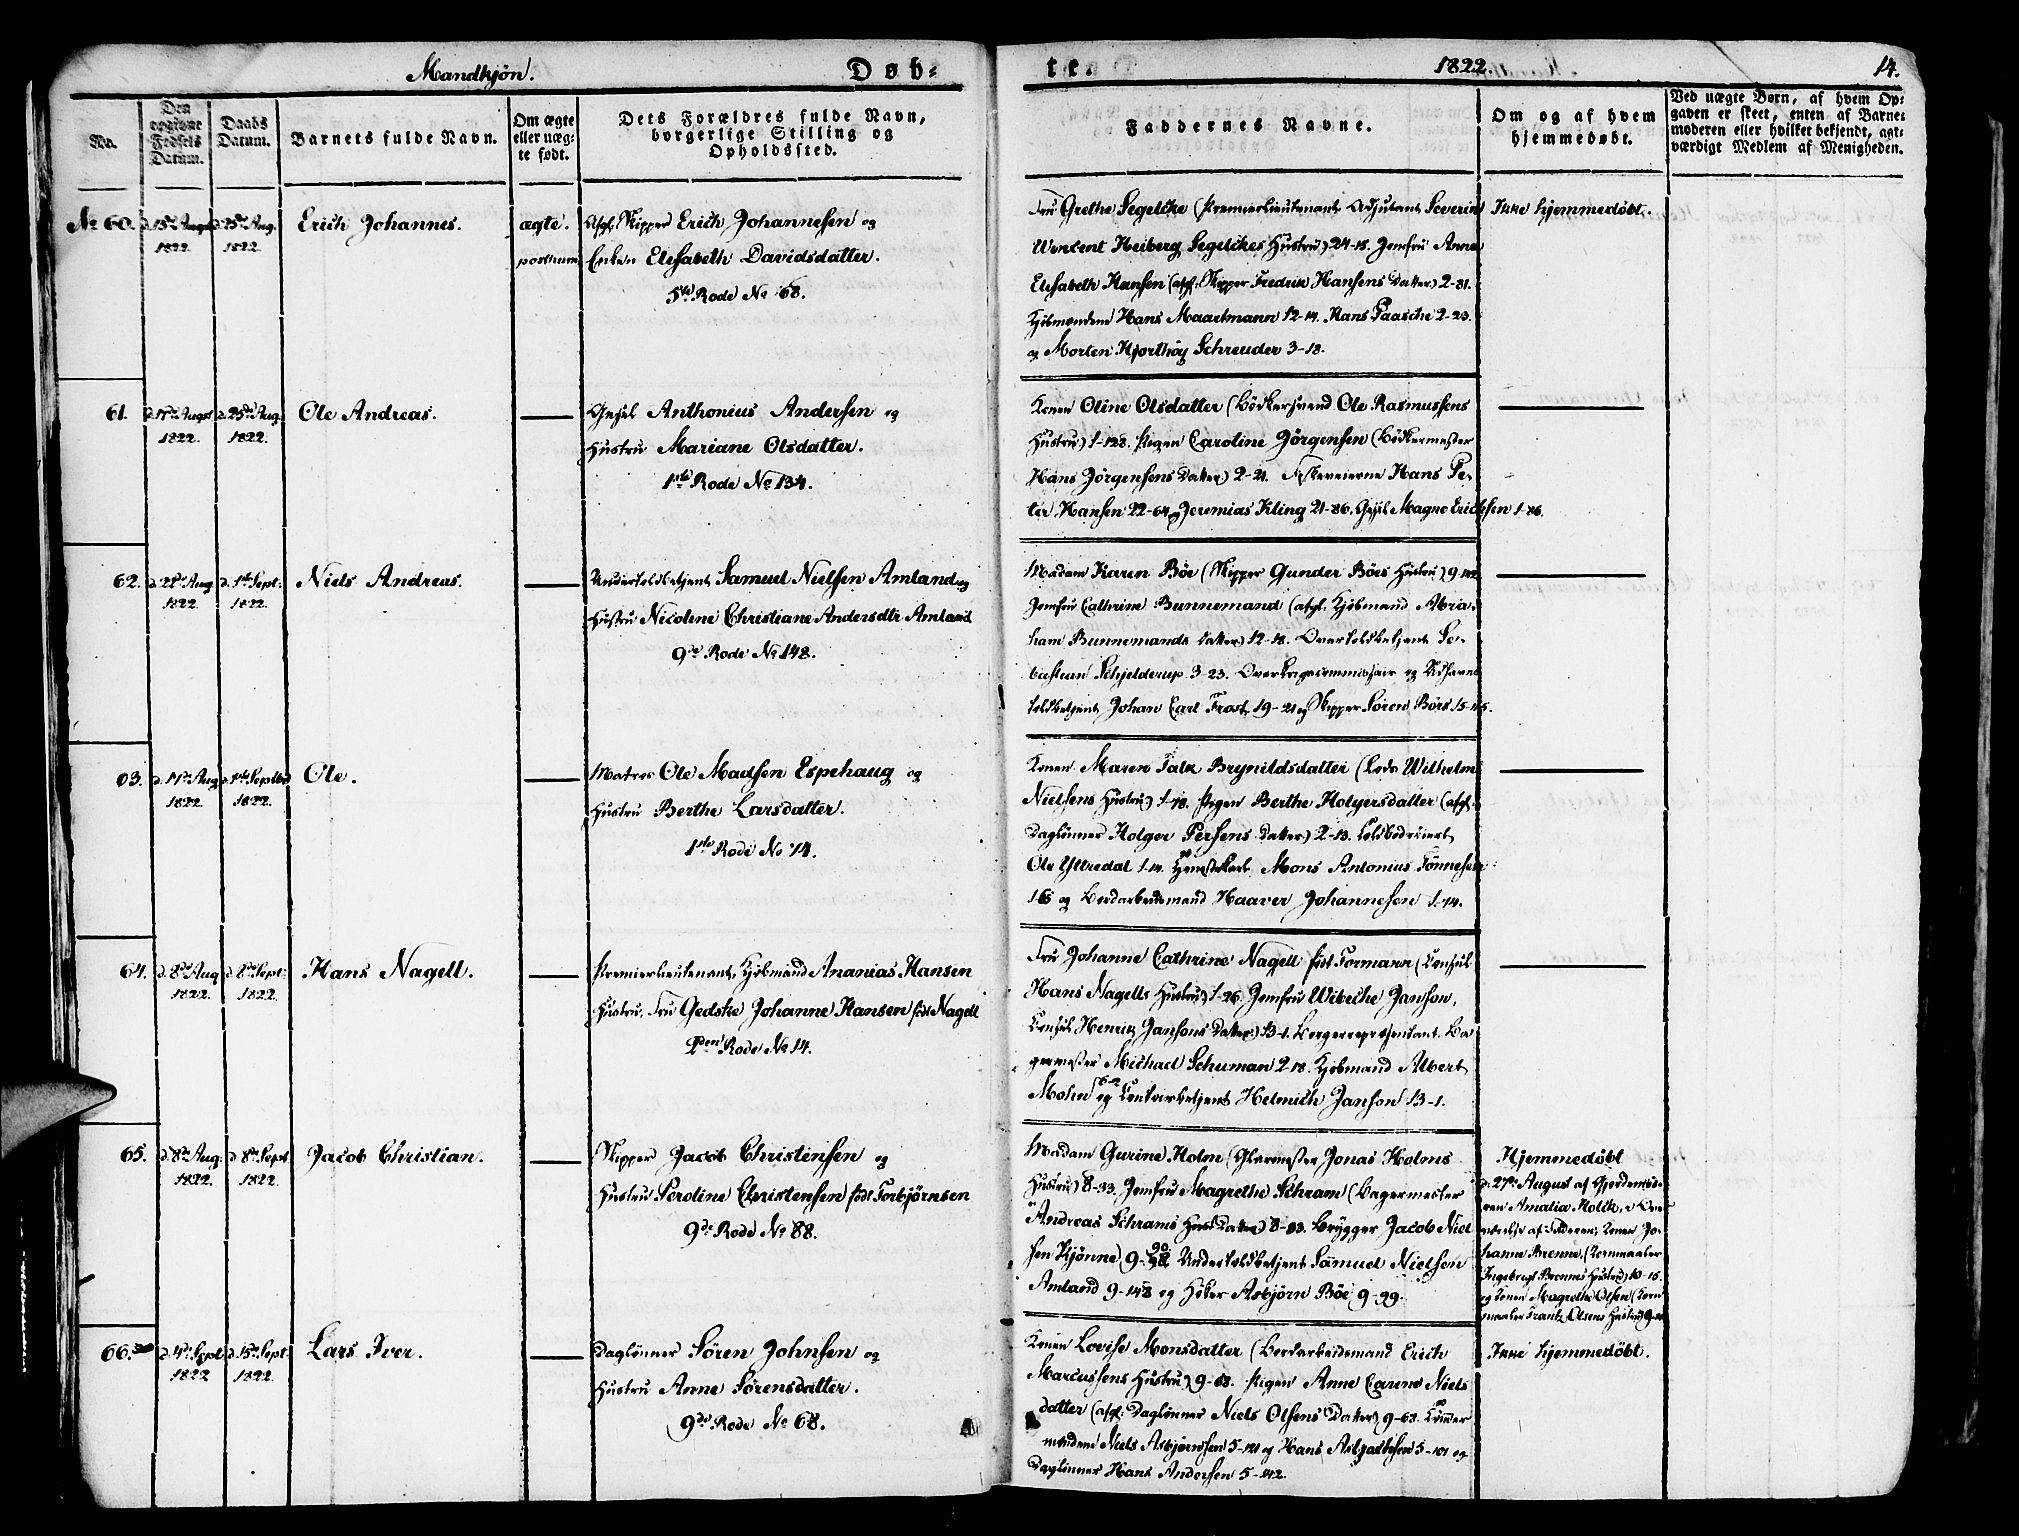 Mandkjön.
Døb=
te.
1822.
14.
No.
Den opgivne Fødsels Datum.
Daabs Datum.
Barnets fulde Navn.
Om ægte eller uægte født.
Dets Forældres fulde Navn, borgerlige Stilling og Opholdssted.
Faddernes Navne.
Om og af hvem hjemmedøbt.
Ved uægte Børn, af hvem Opgaven er skeet, enten af Barnemoderen eller hvilket bekjendt, agtværdigt Medlem af Menigheden.
No 60.
d. 15de Aug 1822
d. 25de Aug. 1822.
Erich Johannes.
ægte. posthum
Afgl. Skipper Erich Johannesen og
Enken Elisabeth Davidsdatter.
5te Rode No 68.
Fru Grethe Segelcke (Premierlieutenant Adjutant Severin
Wencent Heiberg Segelckes Hustru) 24-18. Jomfru Anne
Elisabeth Hansen (afgl. Skipper Fredrik Hansens Datter) 2-81.
Kjöbmændene Hans Maartmann 12-14. Hans Paasche 2-23.
og Morten Hjorthöy Schreuder 3-18.
Ikke hjemmedöbt.
61.
d. 17de August 1822.
d. 25de Aug. 1822.
Ole Andreas.
Gesel Anthonius Andersen og
Hustru Mariane Olsdatter.
1ste Rode No 134.
Konen Oline Olsdatter (Bödkersvend Ole Rasmussens
Hustru) 1-128. Pigen Caroline Jörgensen (Bödkermester
Hans Jörgensens Datter) 2-21. Fiskeveierne Hans Pe-
ter Hansen 22-64 og Jeremias Kling 21-86. Gesel Magne Ericksen 1-86.
62.
d. 22de Aug 1822
d. 1ste Sept: 1822.
Niels Andreas.
Undertoldbetjent Samuel Nielsen Amland og
Hustru Nicoline Christiane Andersdtr Amland
9de Rode No 148.
Madam Karen Böe (Skipper Gunder Böes Hustru) 9-142
Jomfru Cathrine Bunnemand (afgl. Kjöbmand Abra-
ham Bunnemands Datter) 12-18. Overtoldbetjent Se-
bastian Schjelderup 3-23. Overkrigscommissair og
Toldbetjent Johan Carl Frost 19-21 og Skipper Sören Börs 15-45.
63.
d. 11te Aug 1822
d. 1ste Septbr 1822.
Ole.
Matros Ole Madsen Espehaug og
Hustru Berthe Larsdatter.
1ste Rode No 14.
Konen Maren Falk Brynildsdatter (Lods Wilhelm
Nielsens Hustru) 1-18. Pigen Berthe Holgersdatter (afgl.
Daglönner Holger Persens Datter) 2-13.
Ole Yttredal 1-14. Mons Antonius Tönnesen
165 og Bordarbeidsmand Haaver Johannesen 1-14.
64.
d. 8de Aug 1822.
d. 8de Sept: 1822.
Hans Nagell.
Premierlieutenant, Kjöbmand Ananias Hansen
Hustru, Fru Gedske Johanne Hansen födt Nagell
2den Rode No 14.
Fru Johanne Cathrine Nagell födt Formann (Consul
Hans Nagells Hustru) 1-26. Jomfru Wibeche Janson,
Consul Henrik Jansons Datter) 13-1. Borgerrepræsentant. Ba-
germester Michael Schuman 2-18. Kjöbmand Albert
Mohn 6-2 og Contoirbetjent Helmich Janson 13-1.
65.
d. 8de Aug: 1822.
d. 8de Sept 1822.
Jacob Christian.
Skipper Jacob Christensen og
Hustru Seroline Christensen födt Torbjörnsen
9de Rode No 88.
Madam Gurine Holm (Glarmester Jonas Holms
Hustru) 8-33. Jomfru Magrethe Schram (Bagermester
Andreas Schrams Datter) 8-83. Brygger Jacob Niel
sen Kjönne) 9-90. Undertoldbetjent Samuel Nielsen
Amland 9-148 og Höker Asbjörn Böe 9-99.
Hjemmedöbt
d. 27de August af Gjordemod-
ren Amalia Holck, i Over-
værelse af Fadderen; Konen Jo-
hanne Brenne, (Kornmaaler
Ingebrigt Brennes Hustru) 10-16.
og Konen Magrethe Olsen (Korn
maaler Frantz Olsens Hustru) 9-
66.
d. 4de Sept 1822
d. 15de Sept: 1822.
Lars Iver.
Daglönner Sören Johnsen og
Hustru Anne Sörensdatter.
9de Rode No 68.
Konen Lovise Monsdatter (Bordarbeidsmand Erich
Marcussens Hustru) 9-68. Pigen Anne Carine Niels
datter (afgl: Daglönner Niels Olsens Datter) 9-63. Tömmer
mændene Niels Asbjörnsen 5-121 og Hans Asbjörnsen 5-101 og
Daglönner Hans Andersen 5-142.
Ikke hjemmedöbt.